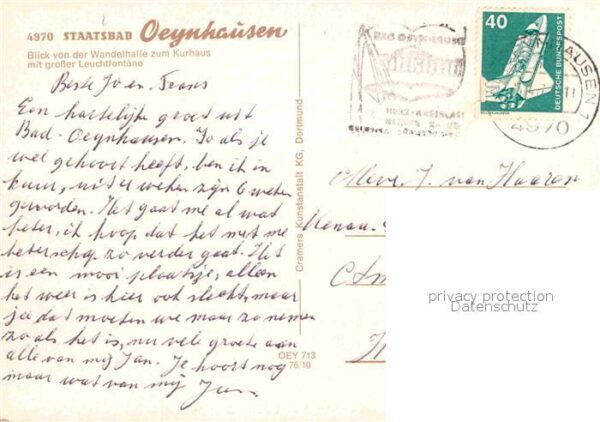 4970 STAATSBAD Oeynhausen
Blick von der Wandelhalle zum Kurhaus
mit großer Leuchtfontäne
Beste Jo en Frans
Een hartelijke groet uit
Bad-Oeynhausen. Jo als je
wel gehoort heeft, ben ik in
kuur, uit 4 weken zijn 6 weken
geworden. Het gaat me al wat
beter, ik hoop dat het met me
beterschap zo verder gaat. Het
is een mooi plaatsje, alleen
het weer is hier ook slecht, maar
ja dat moeten we maar zo nemen
zo als het is, nu vele groete aan
alle van mij Jan. Je hoort nog
maar wat van mij Jan
Cramers Kunstanstalt KG, Dortmund
OEY 713
76/10
BAD OEYNHAUSEN
HERZ-KREISLAUF
40
DEUTSCHE BUNDESPOST
HAUSEN 1
4970
Mevr. J. van Haaren
privacy protection
Datenschutz